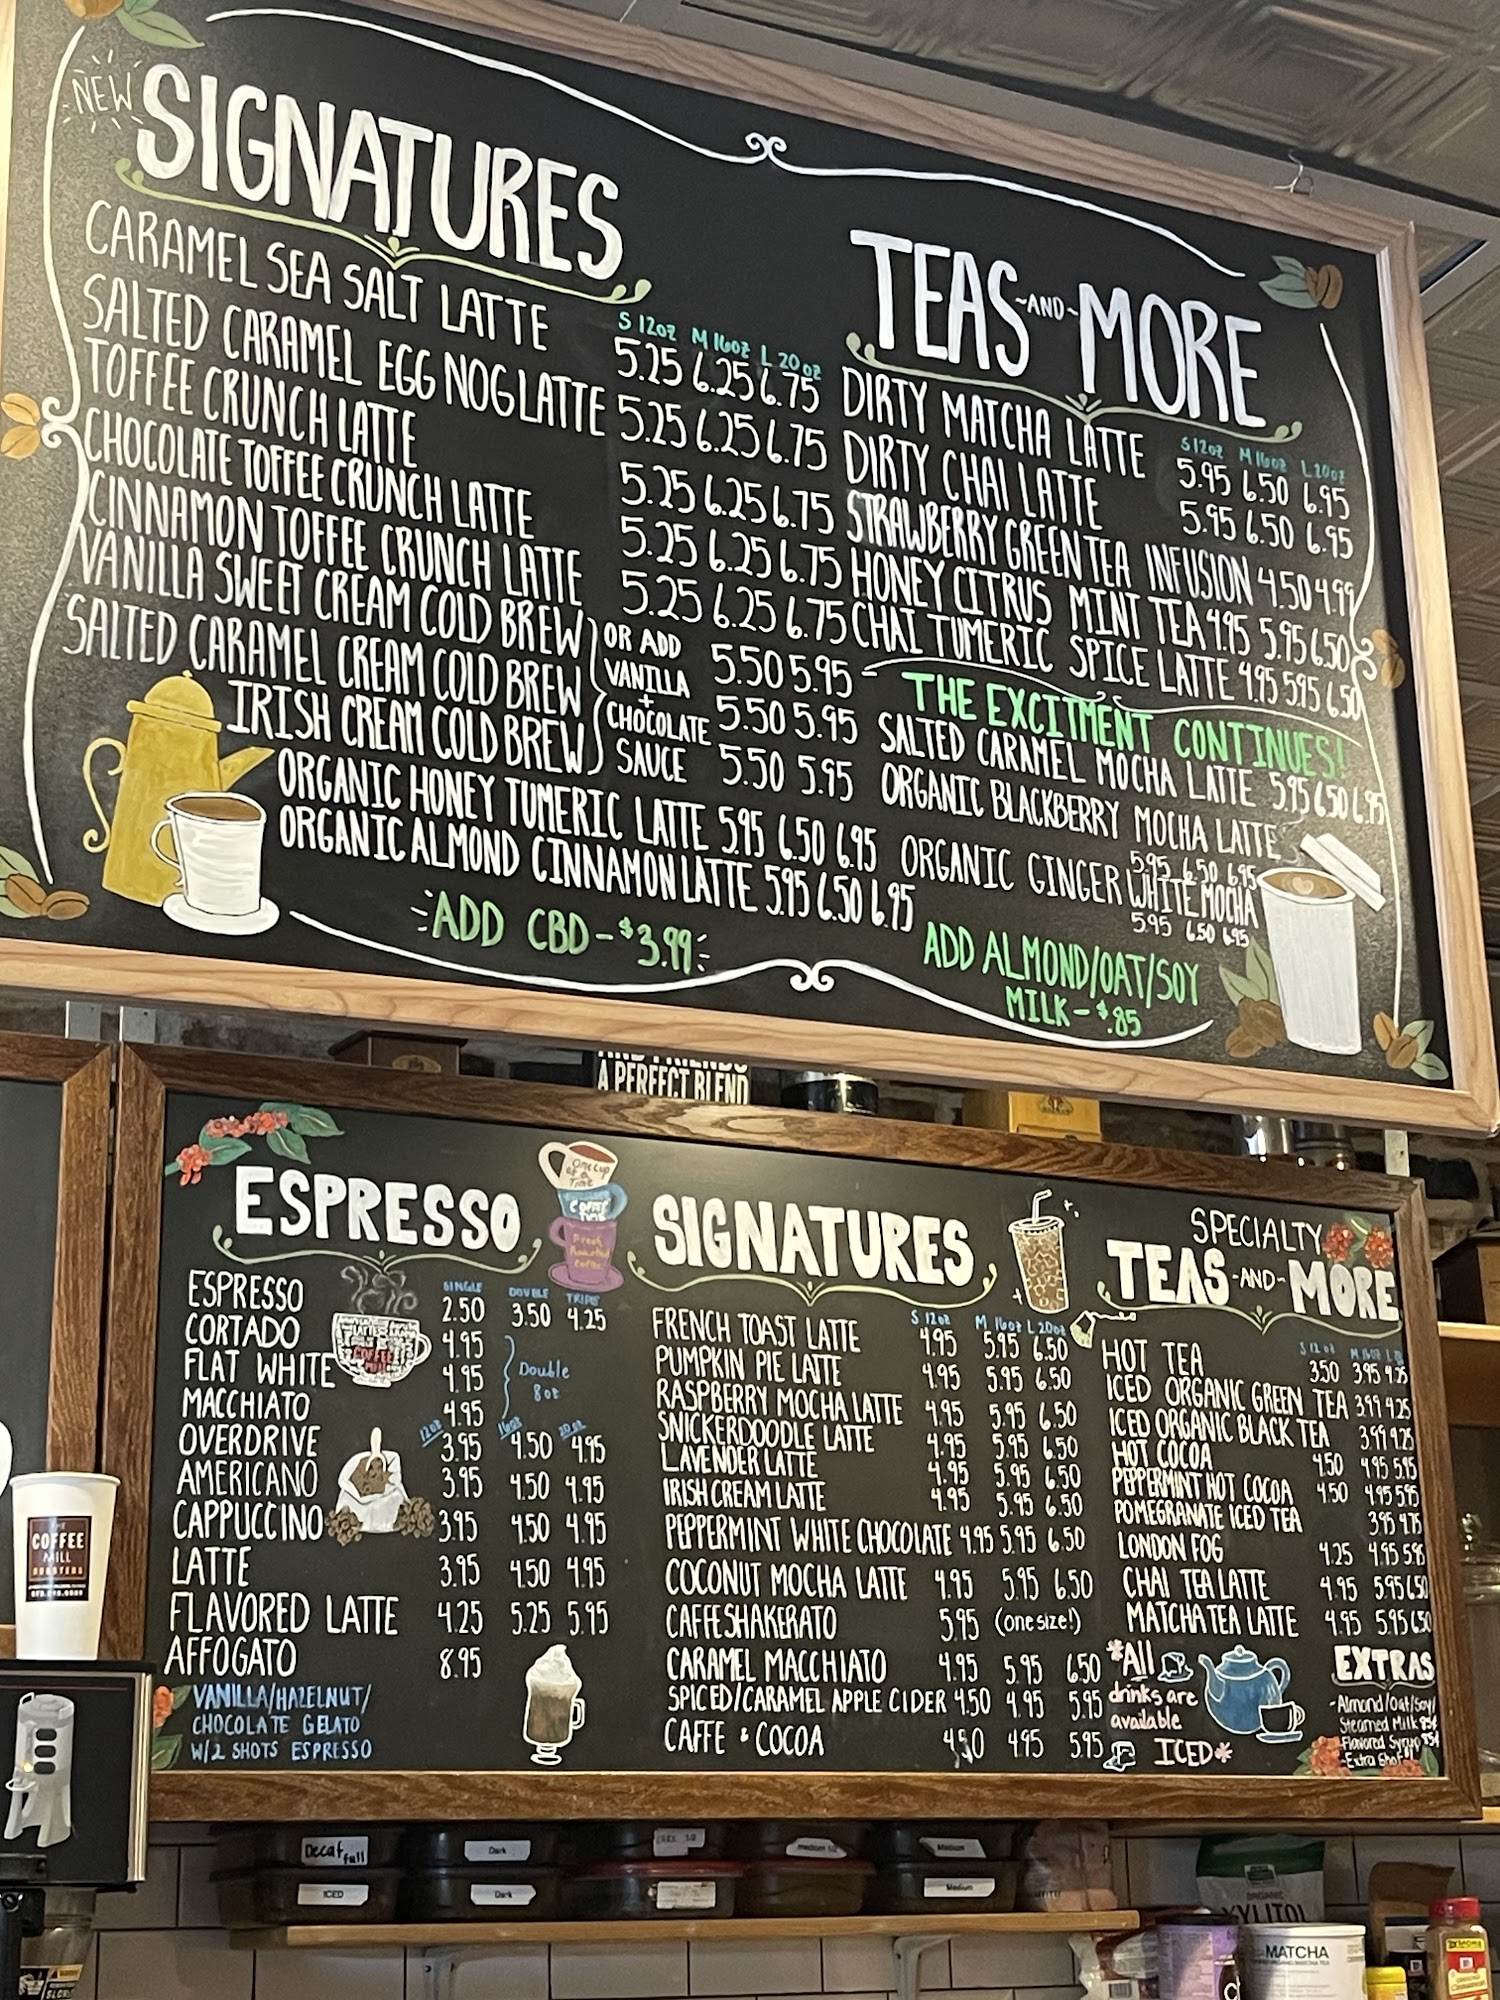 NEW
SIGNATURES
S 12oz M 16oz L 20oz
CARAMEL SEA SALT LATTE 5.25 6.25 6.75
SALTED CARAMEL EGG NOG LATTE 5.25 6.25 6.75
TOFFEE CRUNCH LATTE 5.25 6.25 6.75
CHOCOLATE TOFFEE CRUNCH LATTE 5.25 6.25 6.75
CINNAMON TOFFEE CRUNCH LATTE 5.25 6.25 6.75
VANILLA SWEET CREAM COLD BREW 5.50 5.95
SALTED CARAMEL CREAM COLD BREW 5.50 5.95
IRISH CREAM COLD BREW 5.50 5.95
OR ADD
VANILLA
+
CHOCOLATE
SAUCE
ORGANIC HONEY TUMERIC LATTE 5.95 6.50 6.95
ORGANIC ALMOND CINNAMON LATTE 5.95 6.50 6.95
ADD CBD - $3.99
TEAS -AND- MORE
S 12oz M 16oz L 20oz
DIRTY MATCHA LATTE 5.95 6.50 6.95
DIRTY CHAI LATTE 5.95 6.50 6.95
STRAWBERRY GREEN TEA INFUSION 4.50 4.99
HONEY CITRUS MINT TEA 4.95 5.95 6.50
CHAI TUMERIC SPICE LATTE 4.95 5.95 6.50
THE EXCITMENT CONTINUES!
SALTED CARAMEL MOCHA LATTE 5.95 6.50 6.95
ORGANIC BLACKBERRY MOCHA LATTE
5.95 6.50 6.95
ORGANIC GINGER WHITE MOCHA
5.95 6.50 6.95
ADD ALMOND/OAT/SOY
MILK - $.85
A PERFECT BLEND
ESPRESSO
SINGLE DOUBLE TRIPLE
ESPRESSO 2.50 3.50 4.25
CORTADO 4.95
FLAT WHITE 4.95
MACCHIATO 4.95
Double
8oz
12oz 16oz 20oz
OVERDRIVE 3.95 4.50 4.95
AMERICANO 3.95 4.50 4.95
CAPPUCCINO 3.95 4.50 4.95
LATTE 3.95 4.50 4.95
FLAVORED LATTE 4.25 5.25 5.95
AFFOGATO 8.95
VANILLA/HAZELNUT/
CHOCOLATE GELATO
W/2 SHOTS ESPRESSO
One Cup
at a
Time
COFFEE
Fresh
Roasted
Coffee
SIGNATURES
S 12oz M 16oz L 20oz
FRENCH TOAST LATTE 4.95 5.95 6.50
PUMPKIN PIE LATTE 4.95 5.95 6.50
RASPBERRY MOCHA LATTE 4.95 5.95 6.50
SNICKERDOODLE LATTE 4.95 5.95 6.50
LAVENDER LATTE 4.95 5.95 6.50
IRISH CREAM LATTE 4.95 5.95 6.50
PEPPERMINT WHITE CHOCOLATE 4.95 5.95 6.50
COCONUT MOCHA LATTE 4.95 5.95 6.50
CAFFE SHAKERATO 5.95 (one size!)
CARAMEL MACCHIATO 4.95 5.95 6.50
SPICED/CARAMEL APPLE CIDER 4.50 4.95 5.95
CAFFE & COCOA 4.50 4.95 5.95
SPECIALTY
TEAS -AND- MORE
S 12oz M 16oz
HOT TEA 3.50 3.95 4.25
ICED ORGANIC GREEN TEA 3.99 4.25
ICED ORGANIC BLACK TEA 3.99 4.25
HOT COCOA 4.50 4.95 5.95
PEPPERMINT HOT COCOA 4.50 4.95 5.95
POMEGRANATE ICED TEA 3.95 4.75
LONDON FOG 4.25 4.95 5.95
CHAI TEA LATTE 4.95 5.95 6.50
MATCHA TEA LATTE 4.95 5.95 6.50
*All
drinks are
available
ICED*
EXTRAS
-Almond/Oat/Soy/
Steamed Milk 85¢
-Flavored Syrup 85¢
-Extra Shot
THE
COFFEE
MILL
ROASTERS
Decaf full
Dark
Medium
ICED
Dark
Medium
ORGANIC
XYLITOL
MATCHA